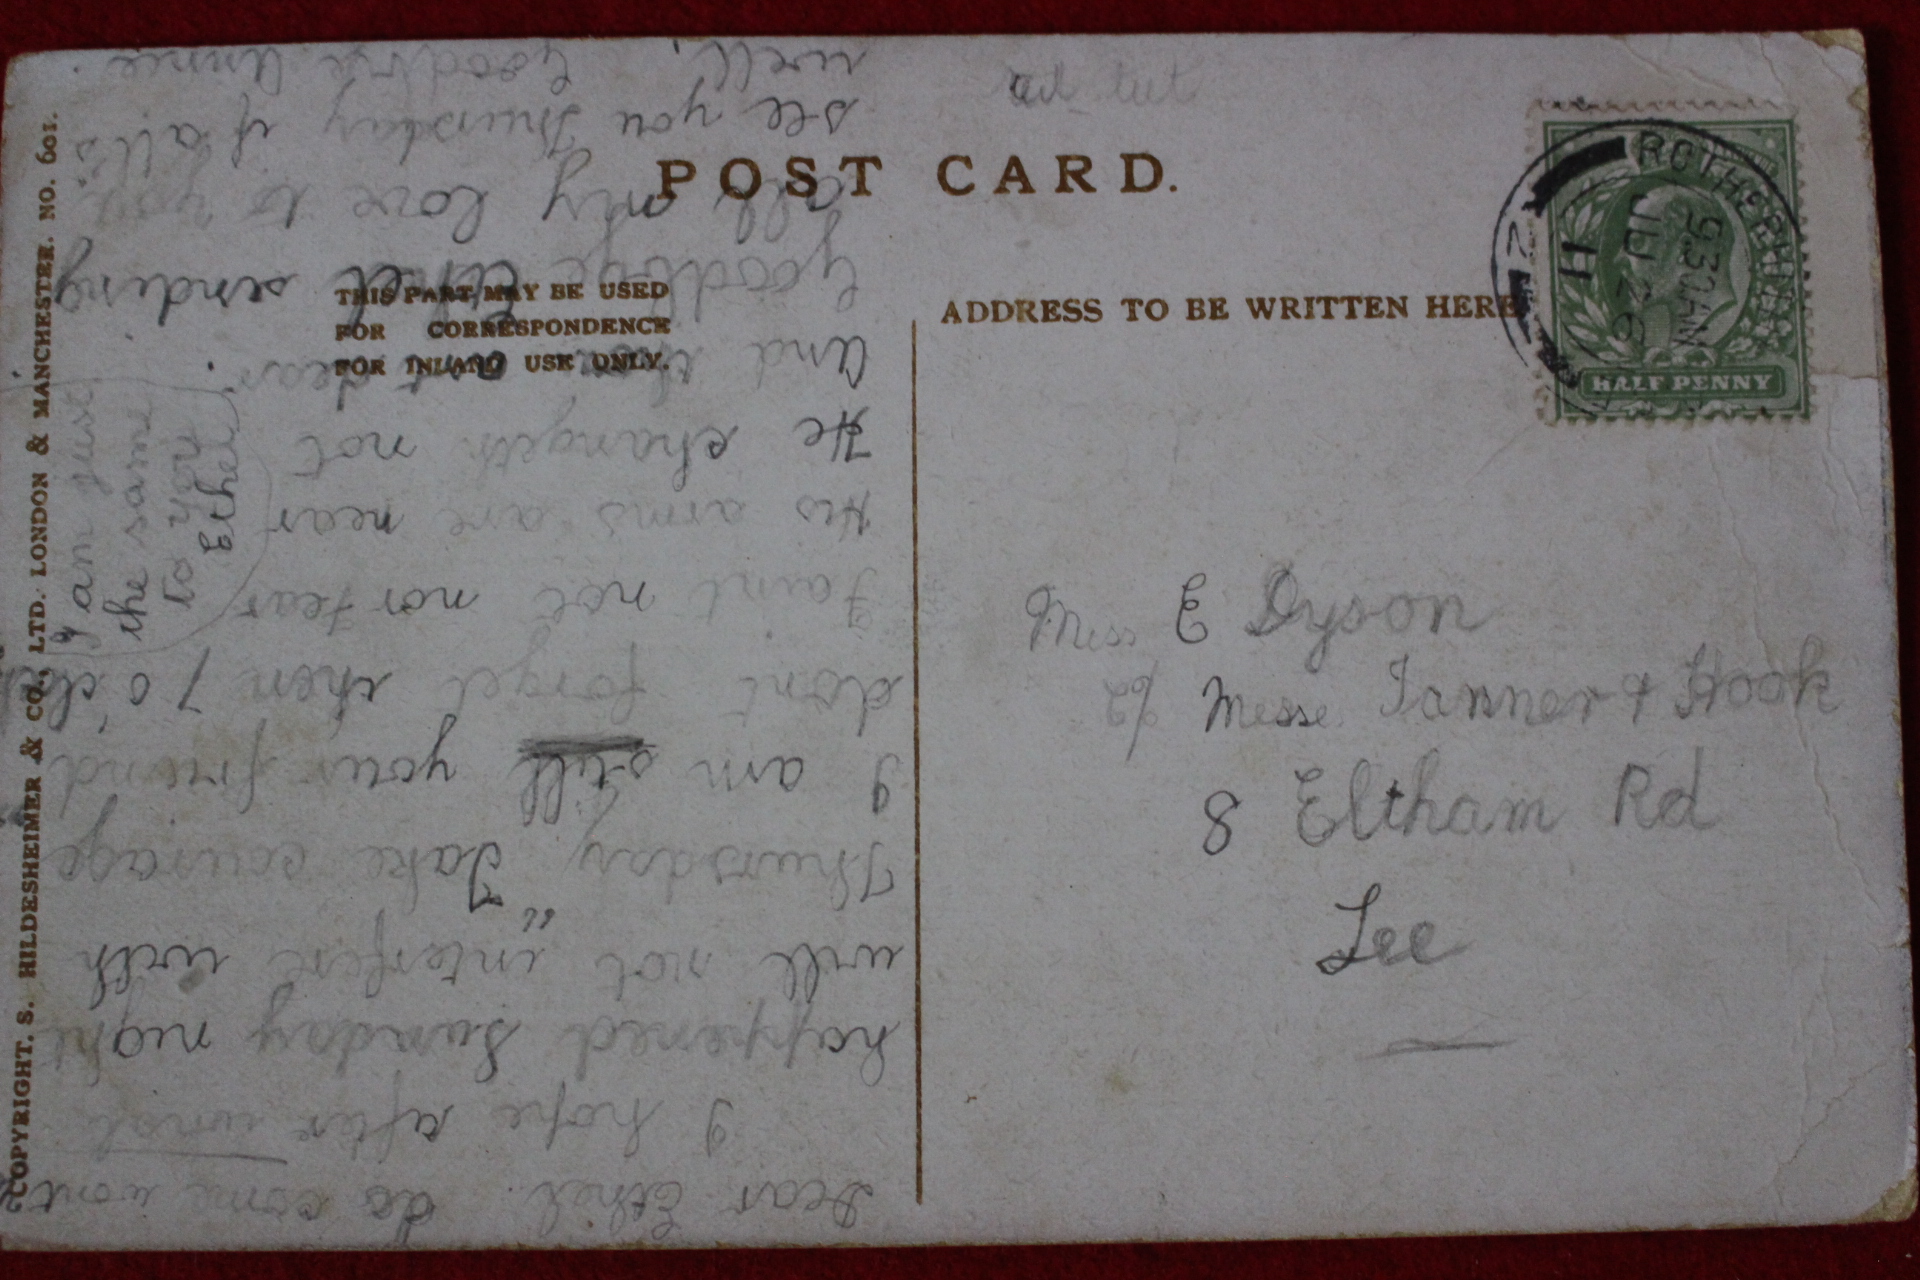 POST CARD.
THIS PART MAY BE USED
FOR CORRESPONDENCE
FOR INLAND USE ONLY.
ADDRESS TO BE WRITTEN HERE
COPYRIGHT. S. HILDESHEIMER & CO., LTD. LONDON & MANCHESTER. NO. 601.
ROTHERHITHE
9.30 AM
JU 26
11
HALF PENNY
Miss E Dyson
Messe Tanner & Hook
8 Eltham Rd
Lee
Dear Ethel. do come wont
I hope after what
happened Sunday night
will not "interfere with
Thursday Take courage
I am still your friend
dont forget then 7 o'clock
Faint not nor fear
His arms are near
He changeth not
And thou art dear.
Goodbye Ethel sending
all my love to you.
see you Thursday if all's
well. Goodbye Annie.
I am just
the same
to you
Ethel